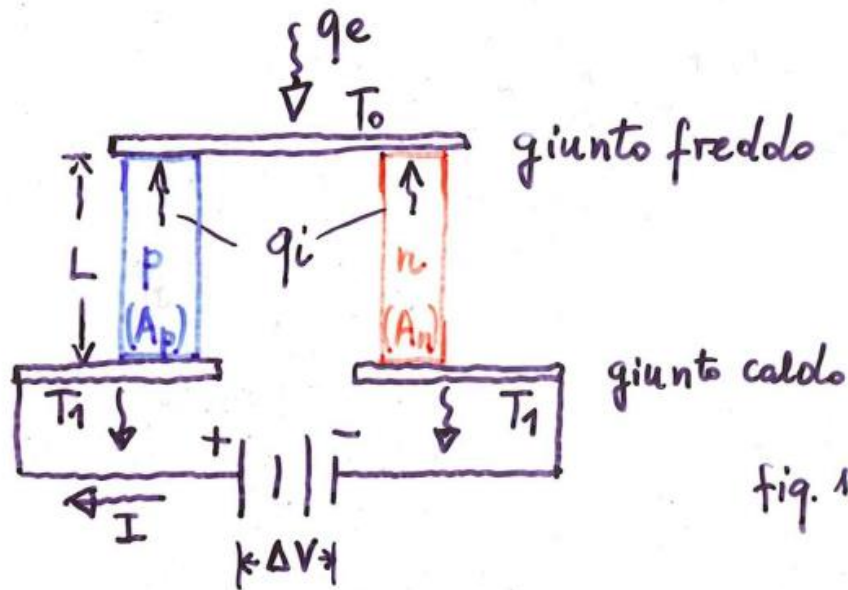 qe
To
giunto freddo
L
p
(Ap)
qi
n
(An)
giunto caldo
T1
+
-
T1
I
ΔV
fig. 1